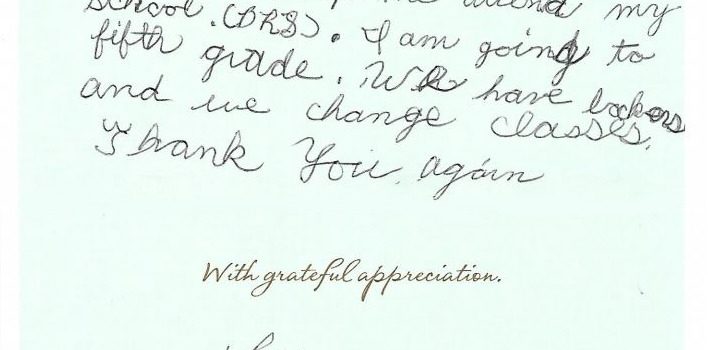 school. (DRS). I am going to
fifth grade. We have lockers
and we change classes.
Thank You again
With grateful appreciation.